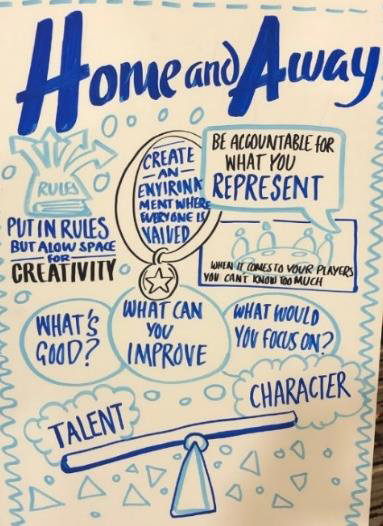 Home and Away
RULES
PUT IN RULES
BUT ALOW SPACE
FOR
CREATIVITY
CREATE
AN
ENVIRINK
MENT WHERE
EVERYONE IS
VALVED
BE ACCOUNTABLE FOR
WHAT YOU
REPRESENT
WHEN IT COMES TO YOUR PLAYERS
YOU CAN'T KNOW TOO MUCH
WHAT'S
GOOD?
WHAT CAN
YOU
IMPROVE
WHAT WOULD
YOU FOCUS ON?
TALENT
CHARACTER